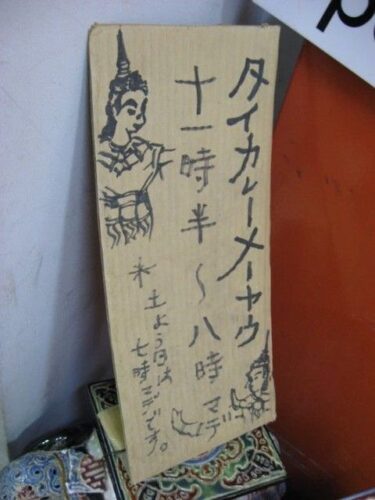 タイカレーメーヤウ
十一時半〜八時マデ
※土よう日は
七時マデです。